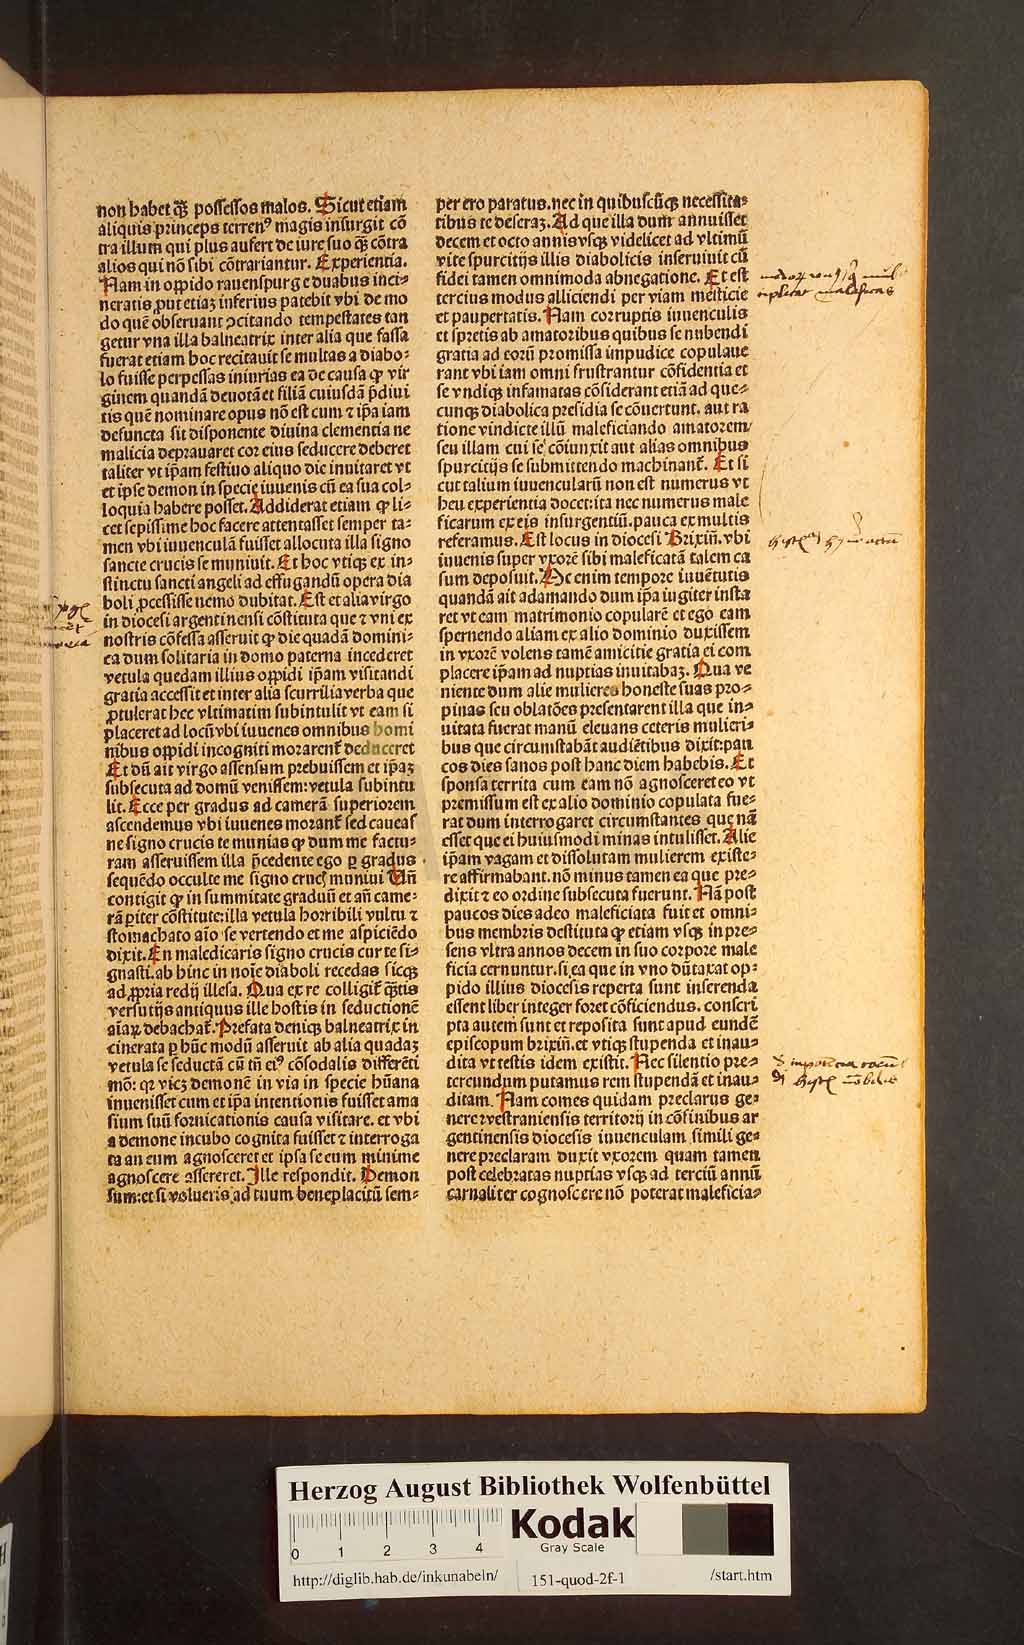 non habet q̄ꝫ possessos malos. Sicut etiam
aliquis princeps terrenꝰ magis insurgit cō
tra illum qui plus aufert de iure suo q̄ꝫ cōtra
alios qui nō sibi cōtrariantur. Experientia.
Nam in oppido rauenspurg e duabus inci⸗
neratis ꝓut etiaꝫ inferius patebit vbi de mo
do quē obseruant ↄcitando tempestates tan
getur vna illa balneatrix inter alia que fassa
fuerat etiam hoc recitauit se multas a diabo⸗
lo fuisse perpessas iniurias ea de causa ꝙ vir
ginem quandā deuotā et filiā cuiusdā p̄diui
tis quē nominare opus nō est cum ⁊ ip̄a iam
defuncta sit disponente diuina clementia ne
malicia deprauaret cor eius seducere deberet
taliter vt ip̄am festiuo aliquo die inuitaret vt
et ipse demon in specie iuuenis cū ea sua col⸗
loquia habere posset. Addiderat etiam ꝙ li⸗
cet sepissime hoc facere attentasset semper ta⸗
men vbi iuuenculā fuisset allocuta illa signo
sancte crucis se muniuit. Et hoc vtiqꝫ ex in⸗
stinctu sancti angeli ad effugandū opera dia
boli ꝓcessisse nemo dubitat. Est et alia virgo
in diocesi argentinensi cōstituta que ⁊ vni ex
nostris cōfessa asseruit ꝙ die quadā domini⸗
ca dum solitaria in domo paterna incederet
vetula quedam illius oppidi ip̄am visitandi
gratia accessit et inter alia scurrilia verba que
ꝓtulerat hec vltimatim subintulit vt eam si
placeret ad locū vbi iuuenes omnibus homi
nibus oppidi incogniti morarent̄ deduceret
Et dū ait virgo assensum prebuissem et ip̄aꝫ
subsecuta ad domū venissem: vetula subintu
lit. Ecce per gradus ad camerā superiorem
ascendemus vbi iuuenes morant̄ sed caueas
ne signo crucis te munias ꝙ dum me factu⸗
ram asseruissem illa p̄cedente ego ꝑ gradus
sequēdo occulte me signo crucꝭ muniui Vn̄
contigit ꝙ in summitate graduū et an̄ came⸗
rā pariter cōstitute: illa vetula horribili vultu ⁊
stomachato aīo se vertendo et me aspiciēdo
dixit. En maledicaris signo crucis cur te si⸗
gnasti. ab hinc in noīe diaboli recedas sicqꝫ
ad ꝓpria redij illesa. Qua ex re colligit̄ q̄ꝫtis
versutijs antiquus ille hostis in seductionē
aīaꝝ debachat̄. Prefata deniqꝫ balneatrix in
cinerata ꝑ hūc modū asseruit ab alia quadaꝫ
vetula se seductā cū tn̄ eiꝰ cōsodalis differēti
mō: qꝛ viꝫ demonē in via in specie hūana
inuenisset cum et ip̄a intentionis fuisset ama
sium suū fornicationis causa visitare. et vbi
a demone incubo cognita fuisset ⁊ interroga
ta an eum agnosceret et ipsa se eum minime
agnoscere assereret. Ille respondit. Demon
sum: et si volueris ad tuum beneplacitū sem⸗
per ero paratus. nec in quibuscūqꝫ necessita⸗
tibus te deseraꝫ. Ad que illa dum annuisset
decem et octo annis vsqꝫ videlicet ad vltimū
vite spurcitijs illis diabolicis inseruiuit cū
fidei tamen omnimoda abnegatione. Et est
tercius modus alliciendi per viam mesticie
et paupertatis. Nam corruptis iuuenculis
et spretis ab amatoribus quibus se nubendi
gratia ad eorū promissa impudice copulaue
rant vbi iam omni frustrantur cōfidentia et
se vndiqꝫ infamatas cōsiderant etiā ad que⸗
cunqꝫ diabolica presidia se cōuertunt. aut ra
tione vindicte illū maleficiando amatorem/
seu illam cui se cōiunxit aut alias omnibus
spurcitijs se submittendo machinant̄. Et si
cut talium iuuencularū non est numerus vt
heu experientia docet: ita nec numerus male
ficarum ex eis insurgentiū. pauca ex multis
referamus. Est locus in diocesi Brixiñ. vbi
iuuenis super vxorē sibi maleficatā talem ca
sum deposuit. Ac enim tempore iuuētutis
quandā ait adamando dum ip̄a iugiter insta
ret vt eam matrimonio copularē et ego eam
spernendo aliam ex alio dominio duxissem
in vxorē volens tamē amicitie gratia ei com
placere ip̄am ad nuptias inuitabaꝫ. Qua ve
niente dum alie mulieres honeste suas pro⸗
pinas seu oblatōes presentarent illa que in⸗
uitata fuerat manū eleuans ceteris mulieri⸗
bus que circumstabāt audiētibus dixit: pau
cos dies sanos post hanc diem habebis. Et
sponsa territa cum eam nō agnosceret eo vt
premissum est ex alio dominio copulata fue⸗
rat dum interrogaret circumstantes que nā
esset que ei huiusmodi minas intulisset. Alie
ip̄am vagam et dissolutam mulierem existe⸗
re affirmabant. nō minus tamen ea que pre⸗
dixit ⁊ eo ordine subsecuta fuerunt. Nā post
paucos dies adeo maleficiata fuit et omni⸗
bus membris destituta ꝙ etiam vsqꝫ in pre⸗
sens vltra annos decem in suo corpore male
ficia cernuntur. si ea que in vno dūtaxat op⸗
pido illius diocesis reperta sunt inserenda
essent liber integer foret cōficiendus. conscri
pta autem sunt et reposita sunt apud eundē
episcopum brixiñ. et vtiqꝫ stupenda et inau⸗
dita vt testis idem existit. Nec silentio pre⸗
tereundum putamus rem stupendā et inau⸗
ditam. Nam comes quidam preclarus ge⸗
nere ⁊ vestraniensis territorij in cōfinibus ar
gentinensis diocesis iuuenculam simili ge⸗
nere preclaram duxit vxorem quam tamen
post celebratas nuptias vsqꝫ ad terciū annū
carnaliter cognoscere nō poterat maleficia⸗
Herzog August Bibliothek Wolfenbüttel
0 1 2 3 4
Kodak
Gray Scale
http://diglib.hab.de/inkunabeln/ 151-quod-2f-1 /start.htm